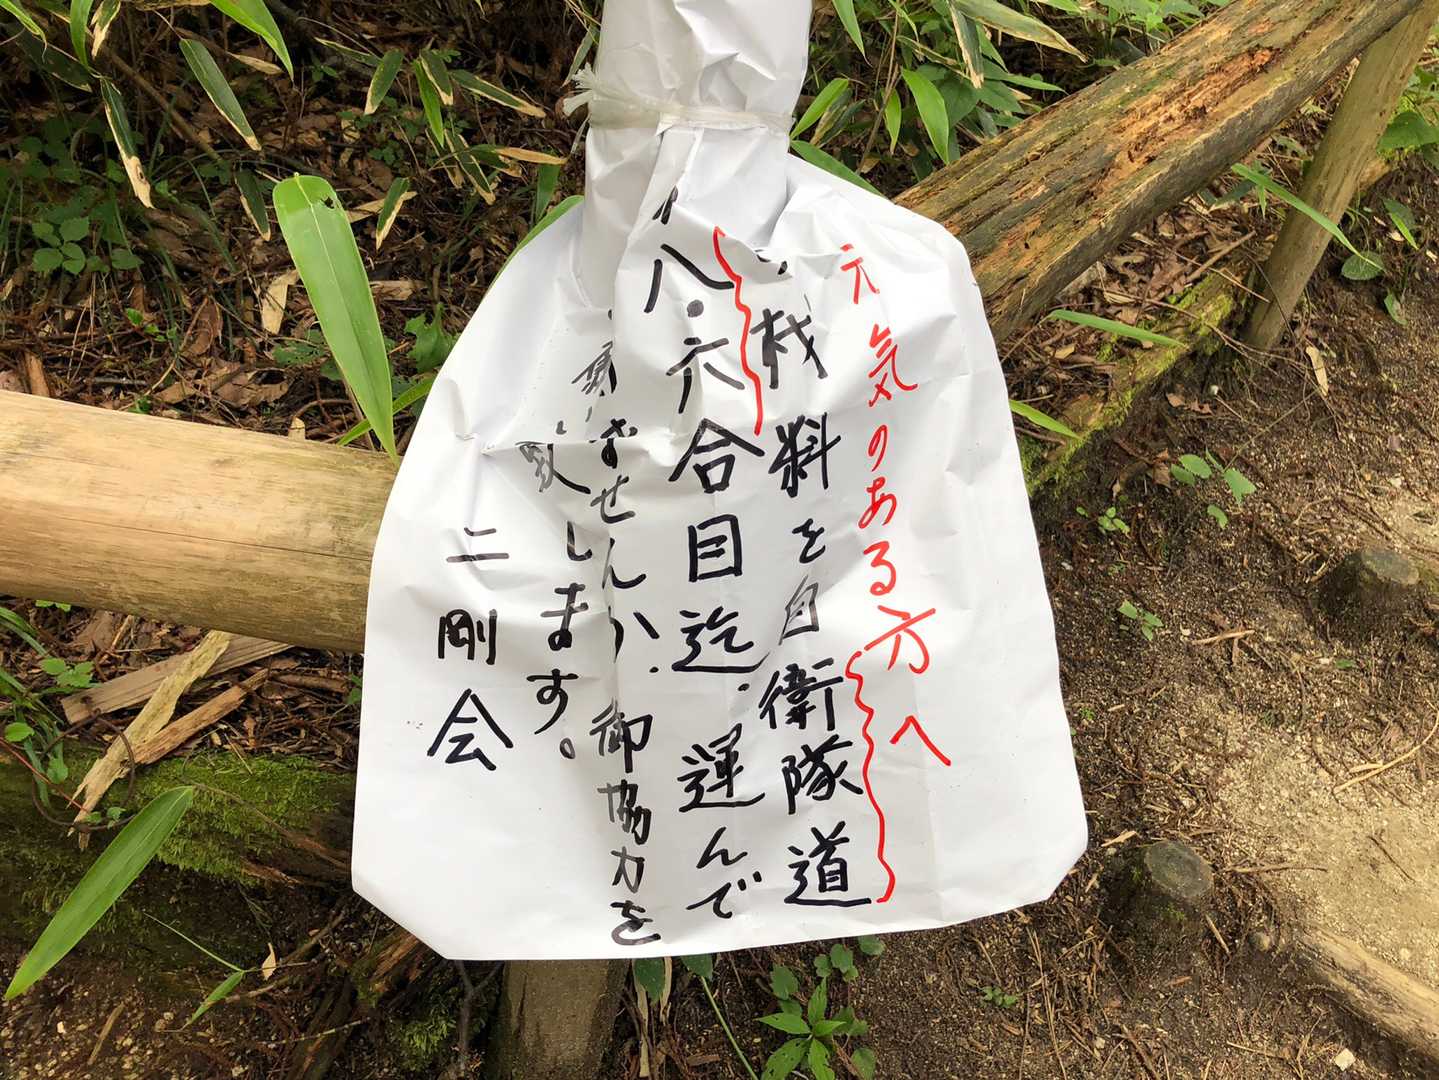 元気のある方へ
の材料を自衛隊道
八・六合目迄運んで
ませんか、御協力を
致します。
二剛会